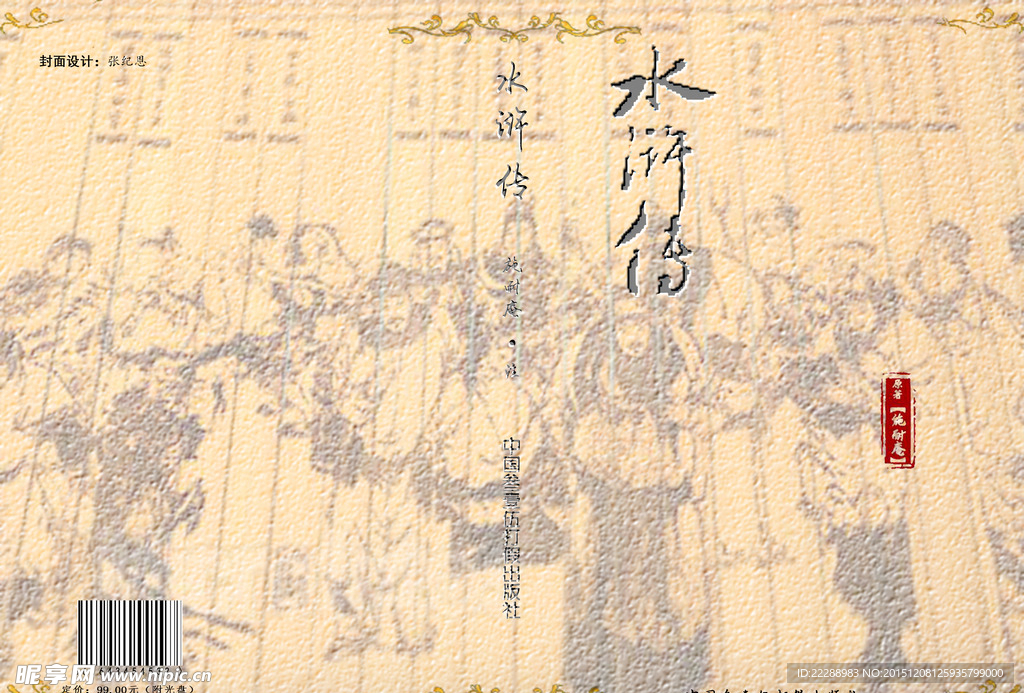 封面设计：张纪恩
水浒传
施耐庵·著
中国叁壹伍打假出版社
水浒传
原著【施耐庵】
昵享网 www.nipic.cn
定价：99.00元（附光盘）
ID:22288983 NO:20151208125935799000